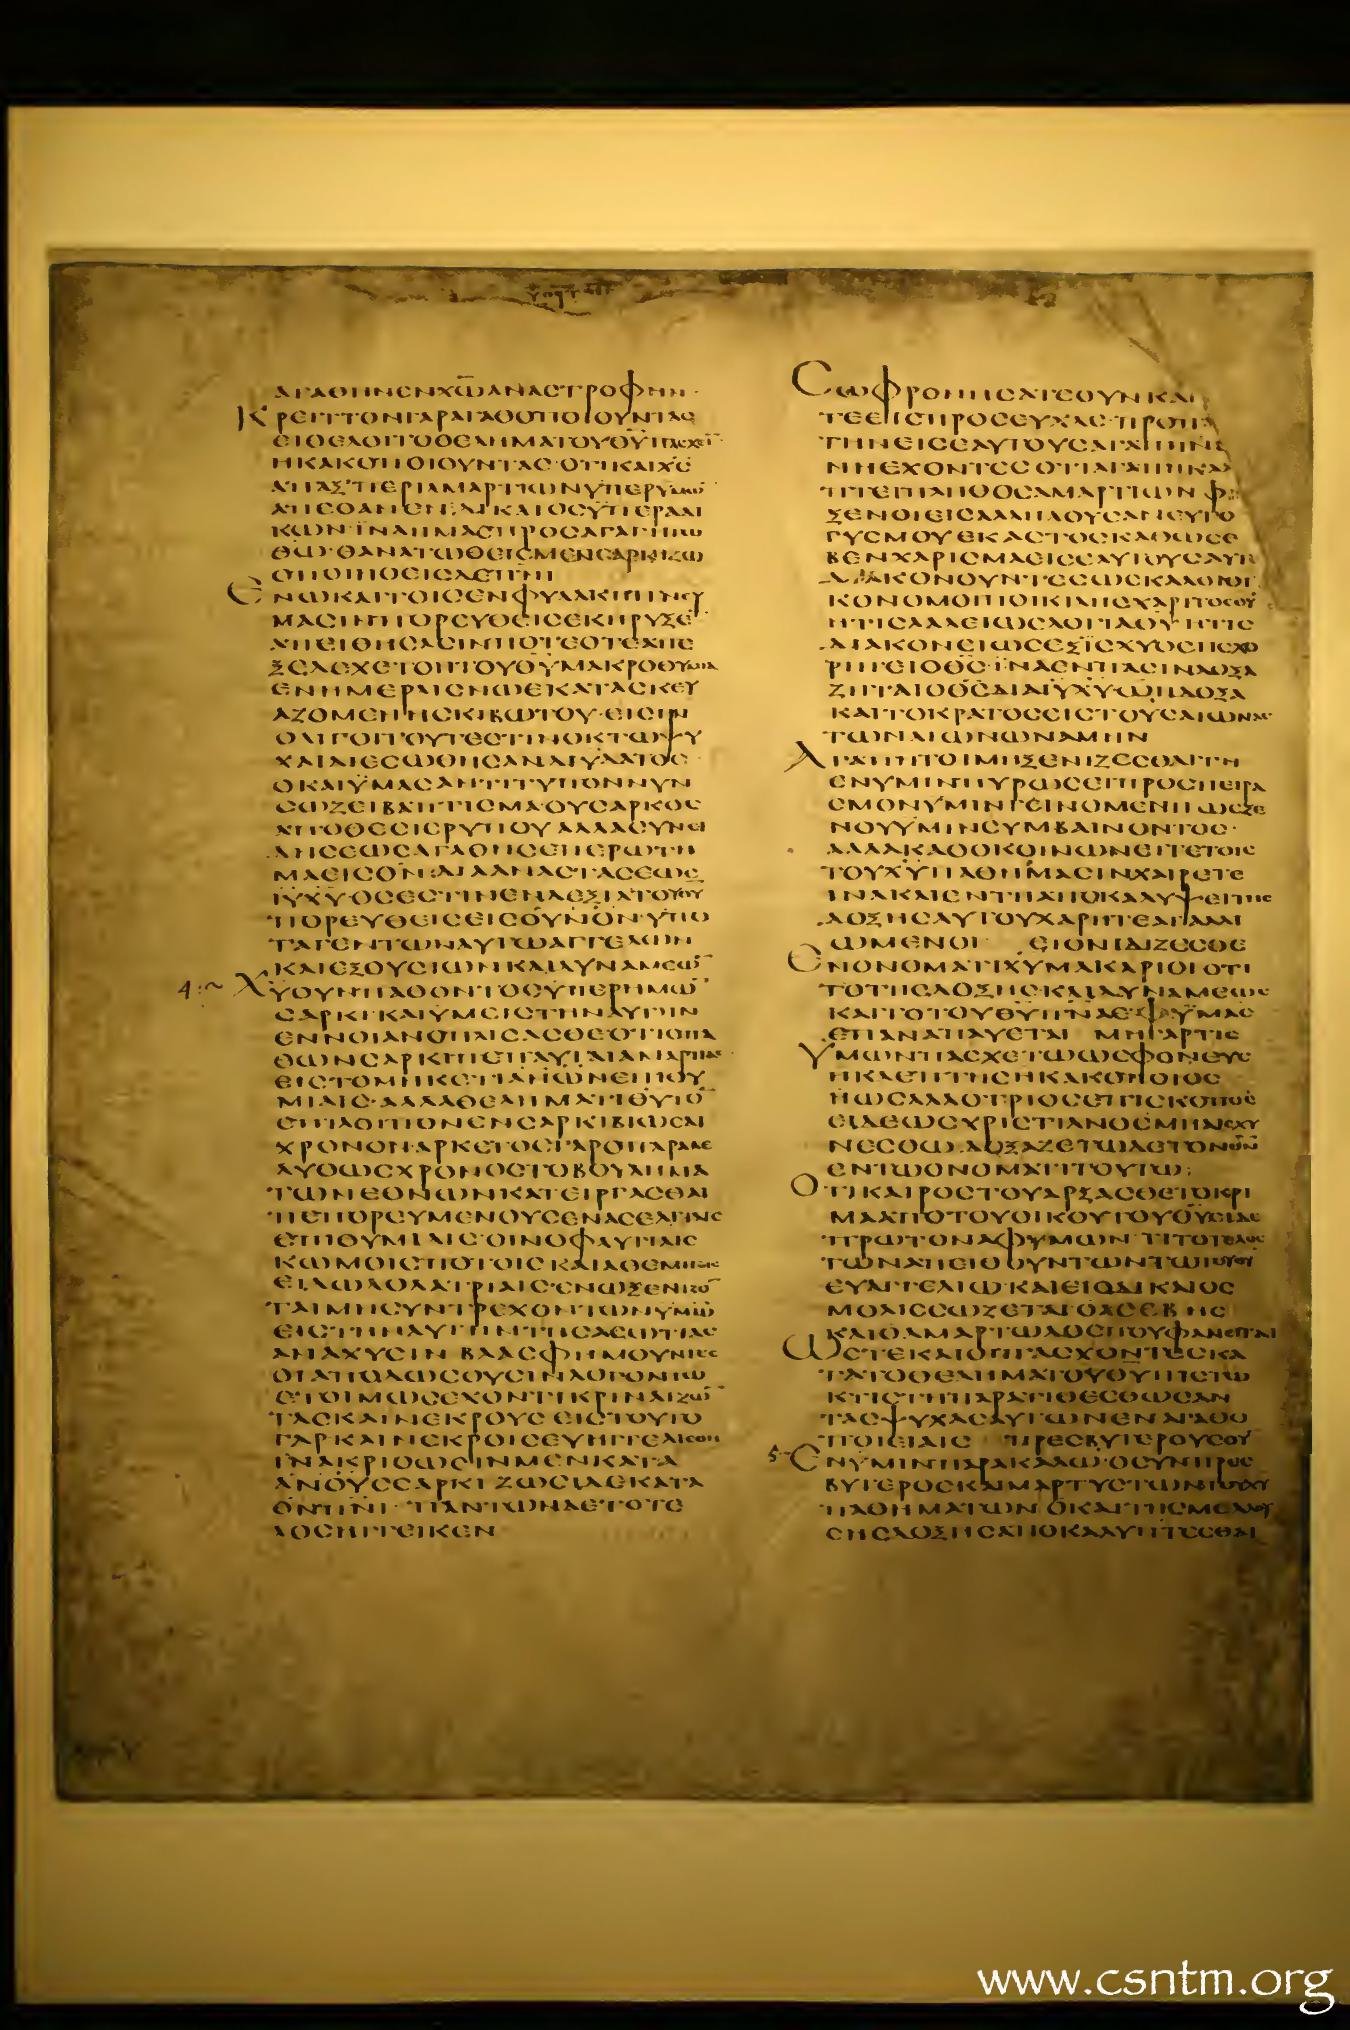 ΑΓΑΘΗΝΕΝΧΩΑΝΑΣΤΡΟΦΗΝ·
ΚΡΕΙΤΤΟΝΓΑΡΑΓΑΘΟΠΟΙΟΥΝΤΑΣ
ΕΙΘΕΛΟΙΤΟΘΕΛΗΜΑΤΟΥΘΥΠΑΣΧΕΙ
ΗΚΑΚΟΠΟΙΟΥΝΤΑΣ·ΟΤΙΚΑΙΧΣ
ΑΠΑΞΠΕΡΙΑΜΑΡΤΙΩΝΥΠΕΡΥΜΩ
ΑΠΕΘΑΝΕΝ·ΔΙΚΑΙΟΣΥΠΕΡΑΔΙ
ΚΩΝ·ΙΝΑΗΜΑΣΠΡΟΣΑΓΑΓΗΤΩ
ΘΩ·ΘΑΝΑΤΩΘΕΙΣΜΕΝΣΑΡΚΙΖΩ
ΟΠΟΙΗΘΕΙΣΔΕΠΝΙ
ΕΝΩΚΑΙΤΟΙΣΕΝΦΥΛΑΚΗΠΝΕΥ
ΜΑΣΙΝΠΟΡΕΥΘΕΙΣΕΚΗΡΥΞΕ
ΑΠΕΙΘΗΣΑΣΙΝΠΟΤΕΟΤΕΑΠΕ
ΞΕΔΕΧΕΤΟΗΤΟΥΘΥΜΑΚΡΟΘΥΜΙΑ
ΕΝΗΜΕΡΑΙΣΝΩΕΚΑΤΑΣΚΕΥ
ΑΖΟΜΕΝΗΣΚΙΒΩΤΟΥ·ΕΙΣΗΝ
ΟΛΙΓΟΙΤΟΥΤΕΣΤΙΝΟΚΤΩΨΥ
ΧΑΙΔΙΕΣΩΘΗΣΑΝΔΙΥΔΑΤΟΣ
ΟΚΑΙΥΜΑΣΑΝΤΙΤΥΠΟΝΝΥΝ
ΣΩΖΕΙΒΑΠΤΙΣΜΑ·ΟΥΣΑΡΚΟΣ
ΑΠΟΘΕΣΙΣΡΥΠΟΥΑΛΛΑΣΥΝΕΙ
ΔΗΣΕΩΣΑΓΑΘΗΣΕΠΕΡΩΤΗ
ΜΑΕΙΣΘΝ·ΔΙΑΝΑΣΤΑΣΕΩΣ
ΙΥΧΥΟΣΕΣΤΙΝΕΝΔΕΞΙΑΤΟΥΘΥ
ΠΟΡΕΥΘΕΙΣΕΙΣΟΥΝΟΝ·ΥΠΟ
ΤΑΓΕΝΤΩΝΑΥΤΩΑΓΓΕΛΩΝ
ΚΑΙΕΞΟΥΣΙΩΝΚΑΙΔΥΝΑΜΕΩ
4:~ ΧΥΟΥΝΠΑΘΟΝΤΟΣΥΠΕΡΗΜΩ
ΣΑΡΚΙ·ΚΑΙΥΜΕΙΣΤΗΝΑΥΤΗΝ
ΕΝΝΟΙΑΝΟΠΛΙΣΑΣΘΕΟΤΙΟΠΑ
ΘΩΝΣΑΡΚΙΠΕΠΑΥΤΑΙΑΜΑΡΤΙΑΣ
ΕΙΣΤΟΜΗΚΕΤΙΑΝΩΝΕΠΙΘΥ
ΜΙΑΙΣ·ΑΛΛΑΘΕΛΗΜΑΤΙΘΥΤΟ
ΕΠΙΛΟΙΠΟΝΕΝΣΑΡΚΙΒΙΩΣΑΙ
ΧΡΟΝΟΝ·ΑΡΚΕΤΟΣΓΑΡΟΠΑΡΕΛΗ
ΛΥΘΩΣΧΡΟΝΟΣΤΟΒΟΥΛΗΜΑ
ΤΩΝΕΘΝΩΝΚΑΤΕΙΡΓΑΣΘΑΙ
ΠΕΠΟΡΕΥΜΕΝΟΥΣΕΝΑΣΕΛΓΙΑΙΣ
ΕΠΙΘΥΜΙΑΙΣ·ΟΙΝΟΦΛΥΓΙΑΙΣ
ΚΩΜΟΙΣΠΟΤΟΙΣΚΑΙΑΘΕΜΙΤΟΙΣ
ΕΙΔΩΛΟΛΑΤΡΙΑΙΣ·ΕΝΩΞΕΝΙΖΟ
ΤΑΙΜΗΣΥΝΤΡΕΧΟΝΤΩΝΥΜΩ
ΕΙΣΤΗΝΑΥΤΗΝΤΗΣΑΣΩΤΙΑΣ
ΑΝΑΧΥΣΙΝ ΒΛΑΣΦΗΜΟΥΝΤΕΣ
ΟΙΑΠΟΔΩΣΟΥΣΙΝΛΟΓΟΝΤΩ
ΕΤΟΙΜΩΣΕΧΟΝΤΙΚΡΙΝΑΙΖΩ
ΤΑΣΚΑΙΝΕΚΡΟΥΣ ΕΙΣΤΟΥΤΟ
ΓΑΡΚΑΙΝΕΚΡΟΙΣΕΥΗΓΓΕΛΙΣΘΗ
ΙΝΑΚΡΙΘΩΣΙΝΜΕΝΚΑΤΑ
ΑΝΟΥΣΣΑΡΚΙ ΖΩΣΙΔΕΚΑΤΑ
ΘΝΠΝΙ· ΠΑΝΤΩΝΔΕΤΟΤΕ
ΛΟΣΗΓΓΕΙΚΕΝ
ΣΩΦΡΟΝΗΣΑΤΕΟΥΝΚΑΙ
ΤΕΕΙΣΠΡΟΣΕΥΧΑΣ·ΠΡΟΠΑ
ΤΗΝΕΙΣΕΑΥΤΟΥΣΑΓΑΠΗΝΕ
ΝΗΕΧΟΝΤΕΣΟΤΙΑΓΑΠΗΚΑ
ΠΤΕΙΠΛΗΘΟΣΑΜΑΡΤΙΩΝ Φ
ΞΕΝΟΙΕΙΣΑΛΛΗΛΟΥΣΑΝΕΥΓΟ
ΓΥΣΜΟΥΕΚΑΣΤΟΣΚΑΘΩΣΕ
ΒΕΝΧΑΡΙΣΜΑΕΙΣΕΑΥΤΟΥΣΑΥΤ
ΔΙΑΚΟΝΟΥΝΤΕΣΩΣΚΑΛΟΙΟΙ
ΚΟΝΟΜΟΙΠΟΙΚΙΛΗΣΧΑΡΙΤΟΣΘΥ
ΗΤΙΣΛΑΛΕΙΩΣΛΟΓΙΑΘΥΗΤΙΣ
ΔΙΑΚΟΝΕΙΩΣΕΞΙΣΧΥΟΣΗΣΧΟ
ΡΗΓΕΙΟΘΣ·ΙΝΑΕΝΠΑΣΙΝΔΟΞΑ
ΖΗΤΑΙΟΘΣΔΙΑΙΥΧΥ·ΩΗΔΟΞΑ
ΚΑΙΤΟΚΡΑΤΟΣΕΙΣΤΟΥΣΑΙΩΝΑΣ·
ΤΩΝΑΙΩΝΩΝΑΜΗΝ
ΑΓΑΠΗΤΟΙΜΗΞΕΝΙΖΕΣΘΑΙΤΗ
ΕΝΥΜΙΝΠΥΡΩΣΕΙΠΡΟΣΠΕΙΡΑ
ΣΜΟΝΥΜΙΝΓΕΙΝΟΜΕΝΗΩΣΞΕ
ΝΟΥΥΜΙΝΣΥΜΒΑΙΝΟΝΤΟΣ·
ΑΛΛΑΚΑΘΟΚΟΙΝΩΝΕΙΤΕΤΟΙΣ
ΤΟΥΧΥΠΑΘΗΜΑΣΙΝΧΑΙΡΕΤΕ
ΙΝΑΚΑΙΕΝΤΗΑΠΟΚΑΛΥΨΕΙΤΗΣ
ΔΟΞΗΣΑΥΤΟΥΧΑΡΗΤΕΑΓΑΛΛΙ
ΩΜΕΝΟΙ ΕΙΟΝΙΔΙΖΕΣΘΕ
ΕΝΟΝΟΜΑΤΙΧΥΜΑΚΑΡΙΟΙΟΤΙ
ΤΟΤΗΣΔΟΞΗΣ·ΚΑΙΔΥΝΑΜΕΩΣ
ΚΑΙΤΟΤΟΥΘΥΠΝΑΕΦΥΜΑΣ
ΕΠΑΝΑΠΑΥΕΤΑΙ ΜΗΓΑΡΤΙΣ
ΥΜΩΝΠΑΣΧΕΤΩΩΣΦΟΝΕΥΣ
ΗΚΛΕΠΤΗΣΗΚΑΚΟΠΟΙΟΣ
ΗΩΣΑΛΛΟΤΡΙΟΕΠΙΣΚΟΠΟΣ
ΕΙΔΕΩΣΧΡΙΣΤΙΑΝΟΣΜΗΑΙΣΧΥ
ΝΕΣΘΩ·ΔΟΞΑΖΕΤΩΔΕΤΟΝΘΝ
ΕΝΤΩΟΝΟΜΑΤΙΤΟΥΤΩ:
ΟΤΙΚΑΙΡΟΣΤΟΥΑΡΞΑΣΘΕΤΟΚΡΙ
ΜΑΑΠΟΤΟΥΟΙΚΟΥΤΟΥΘΥΕΙΔΕ
ΠΡΩΤΟΝΑΦΥΜΩΝ ΤΙΤΟΤΕΛΟΣ
ΤΩΝΑΠΕΙΘΟΥΝΤΩΝΤΩΤΟΥΘΥ
ΕΥΑΓΓΕΛΙΩ·ΚΑΙΕΙΟΔΙΚΑΙΟΣ
ΜΟΛΙΣΣΩΖΕΤΑΙΟΑΣΕΒΗΣ
ΚΑΙΟΑΜΑΡΤΩΛΟΣΠΟΥΦΑΝΕΙΤΑΙ
ΩΣΤΕΚΑΙΟΙΠΑΣΧΟΝΤΕΣΚΑ
ΤΑΤΟΘΕΛΗΜΑΤΟΥΘΥΠΙΣΤΩ
ΚΤΙΣΤΗΠΑΡΑΤΙΘΕΣΘΩΣΑΝ
ΤΑΣΨΥΧΑΣΑΥΤΩΝΕΝΑΓΑΘΟ
ΠΟΙΕΙΑΙΣ ΠΡΕΣΒΥΤΕΡΟΥΣΟΥ
5~ ΕΝΥΜΙΝΠΑΡΑΚΑΛΩ·ΟΣΥΝΠΡΕΣ
ΒΥΤΕΡΟΣΚΑΙΜΑΡΤΥΣΤΩΝΤΟΥΧΥ
ΠΑΘΗΜΑΤΩΝ ΟΚΑΙΤΗΣΜΕΛΛΟΥ
ΣΗΣΔΟΞΗΣΑΠΟΚΑΛΥΠΤΕΣΘΑΙ
www.csntm.org